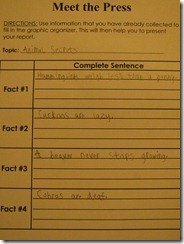 Meet the Press
DIRECTIONS: Use information that you have already collected to
fill in the graphic organizer. This will then help you to present
your report.
Topic: Animal Secrets
Complete Sentence
Fact #1
Hummingbirds weigh less than a penny.
Fact #2
are lazy.
Fact #3
A beaver never stops growing.
Fact #4
Cobras are deaf.